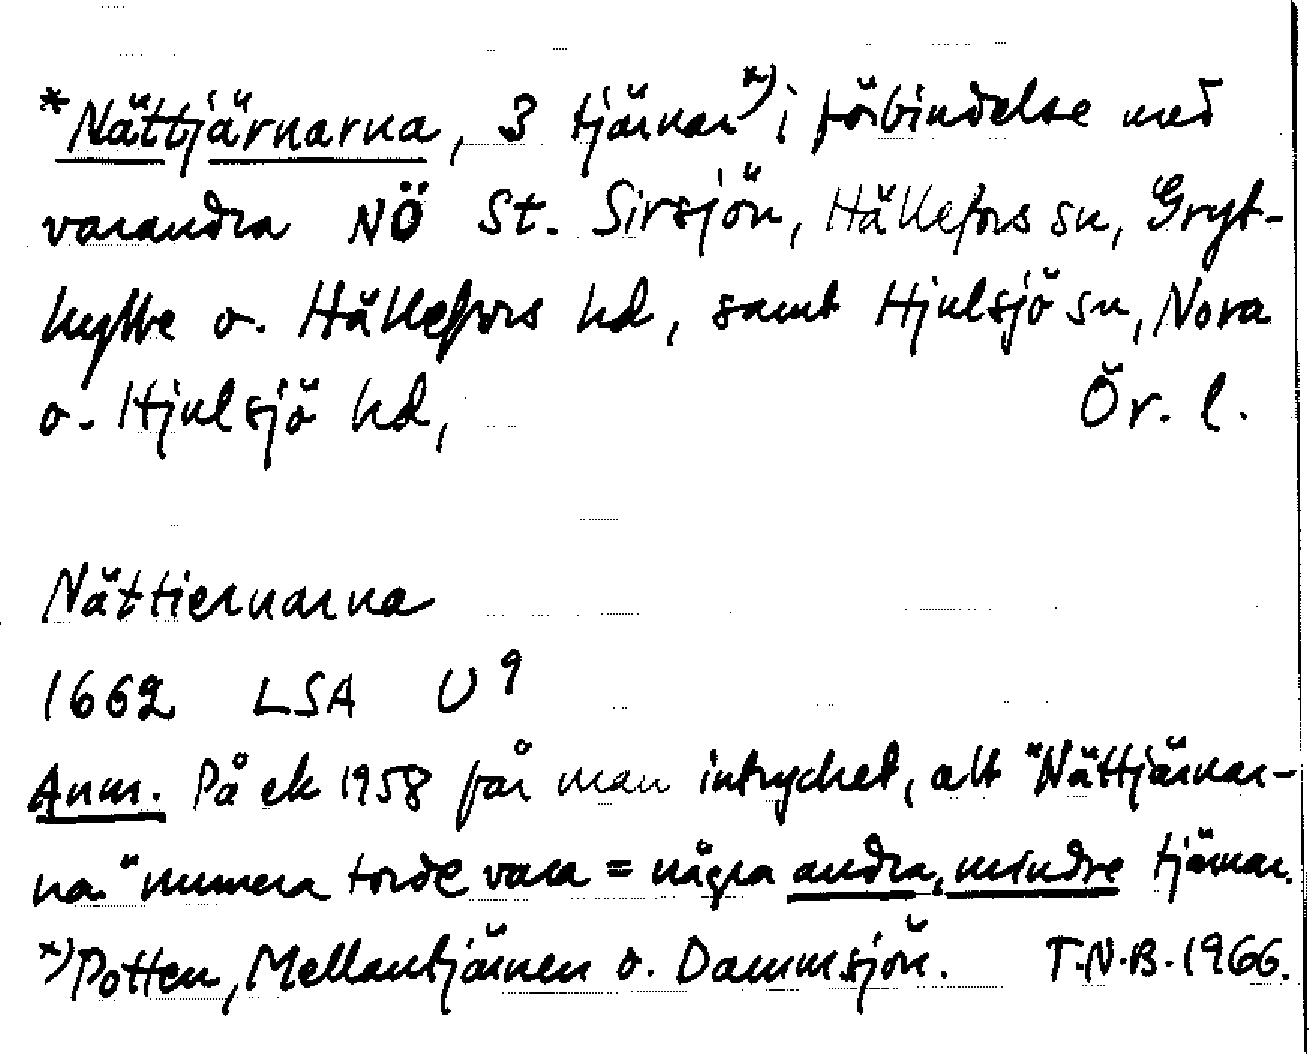 *Nättjärnarna, 3 tjärnar*) i förbindelse med
varandra NÖ St. Sirsjön, Hällefors sn, Gryt-
hytte o. Hällefors hd, samt Hjulsjö sn, Nora
o. Hjulsjö hd, Ör. l.
Nättiernarna
1662 LSA U9
Anm. På ek 1958 får man intrycket, att "Nättjärnar-
na" numera torde vara = några andra, mindre tjärnar.
*) Potten, Mellantjärnen o. Dammsjön. T.N.B. 1966.